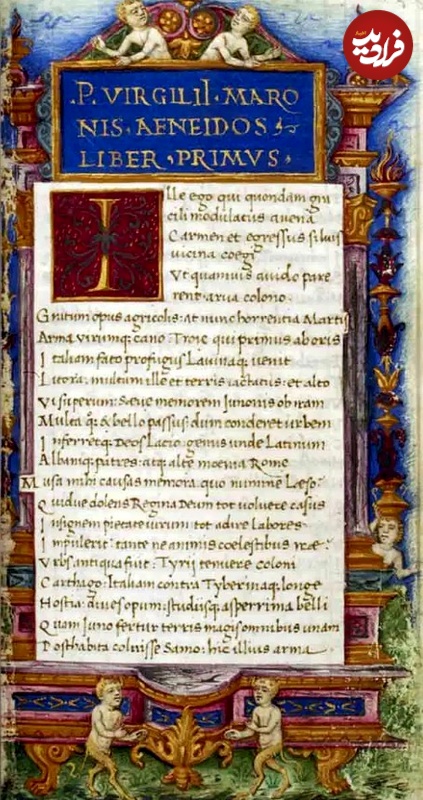 فرادید
.P. VIRGILII. MARO
NIS. AENEIDOS.
LIBER. PRIMVS.
Ille ego qui quondam gra
cili modulatus auena
Carmen et egressus siluis
uicina coegi
Vt quamuis auido pare
rent arua colono.
Gratum opus agricolis: at nunc horrentia Martis
Arma virumq; cano: Troie qui primus ab oris
Italiam fato profugus Lauinaq; uenit
Litora: multum ille et terris iactatus: et alto
Vi superum: Saeue memorem Junonis ob iram
Multa q; & bello passus: dum conderet urbem
Inferretq; Deos Lacio: genus unde Latinum
Albaniq; patres: atq; alte moenia Rome
Musa mihi causas memora. quo numine Leso:
Quidue dolens Regina Deum tot voluere casus
Insignem pietate uirum: tot adire Labores
Impulerit: tante ne animis coelestibus irae:
Vrbs antiqua fuit: Tyrij tenuere coloni
Carthago: Italiam contra Tyberinaq; longe
Hostia: diues opum: studiisq; asperrima belli
Quam Juno fertur terris magis omnibus unam
Posthabita coluisse Samo: hic illius arma